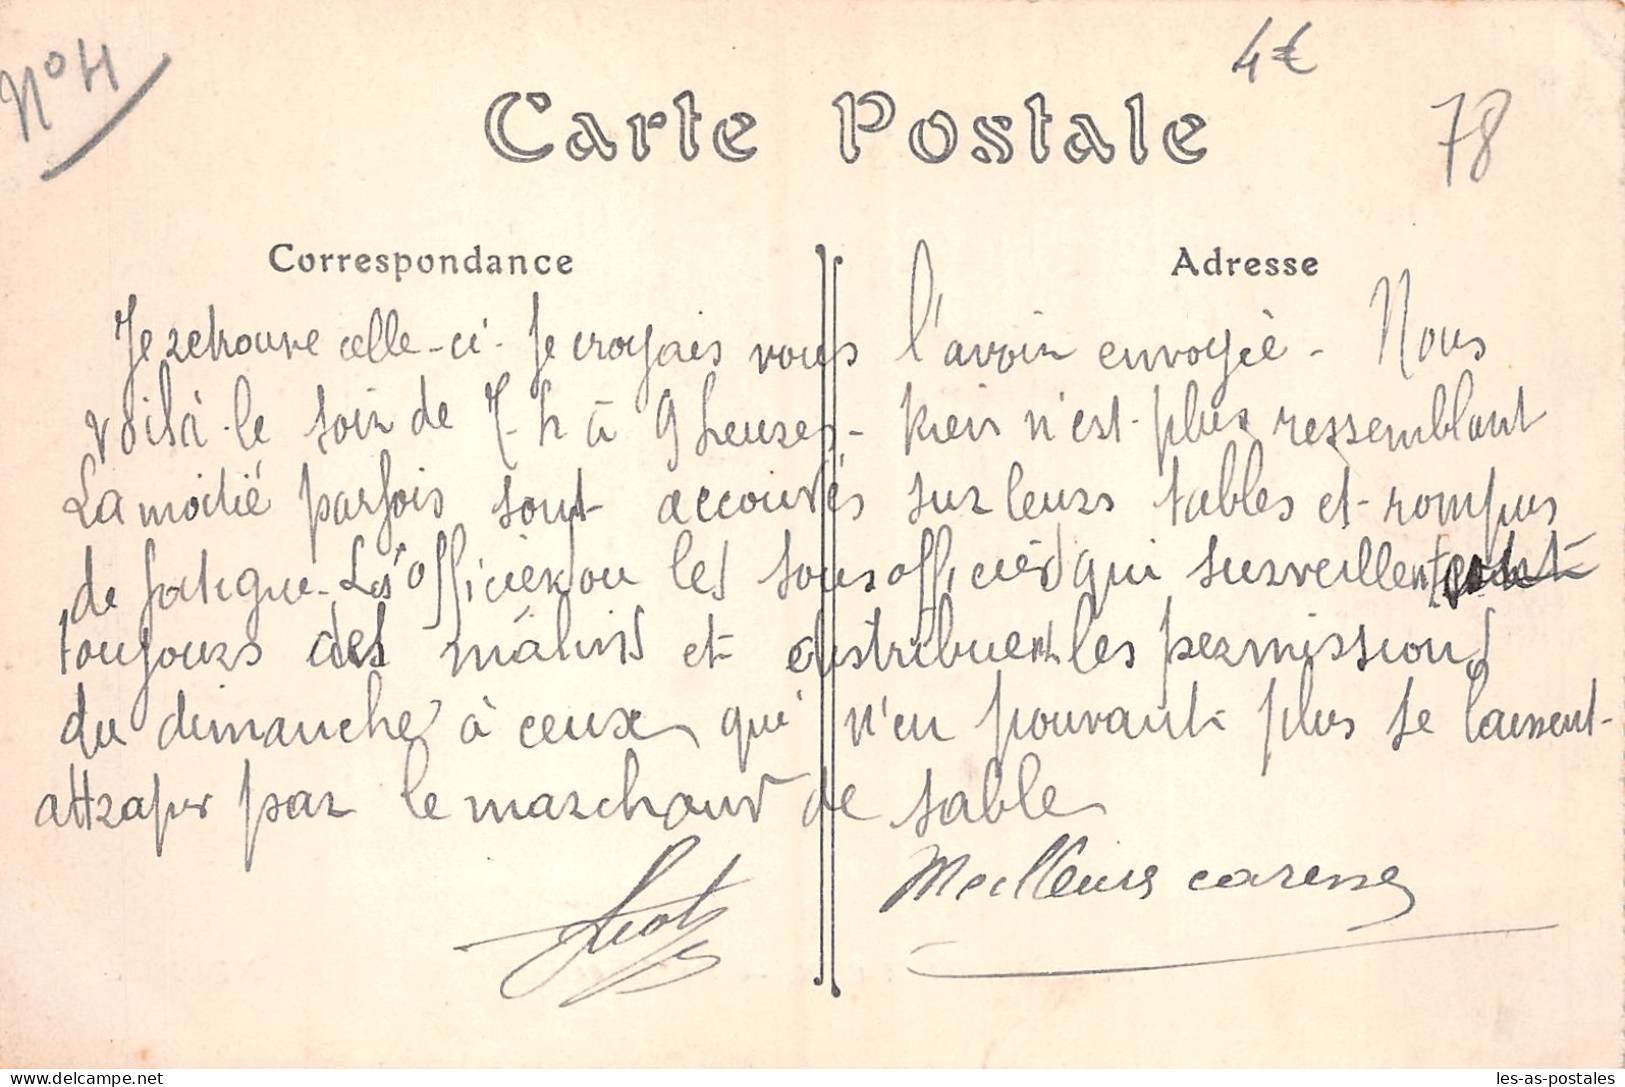 N° 4
4€
Carte Postale
78
Correspondance
Adresse
Je retrouve celle-ci. Je croyais vous l'avoir envoyée - Nous
voilà le soir de 7 h à 9 heures - Rien n'est plus ressemblant
La moitié parfois sont accoudés sur leurs tables et rompus
de fatigue. Les Officiers ou les sous officiers qui surveillent sont
toujours des malins et distribuent les permissions
du dimanche à ceux qui n'en pouvant plus se laissent
attraper par le marchand de sable
Meilleures caresses
les-as-postales